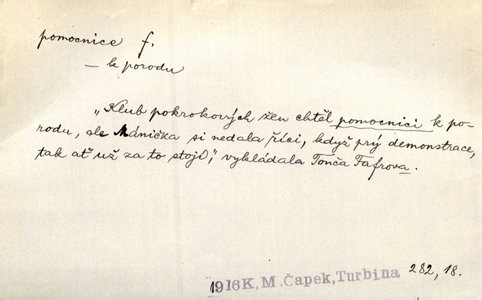 pomocnice f.
– k porodu
„Klub pokrokových žen chtěl pomocnici k po-
rodu, ale Mánička si nedala říci, když prý demonstrace,
tak ať už za to stojí," vykládala Tonča Fafrova.
1916K,M.Čapek,Turbina 282, 18.